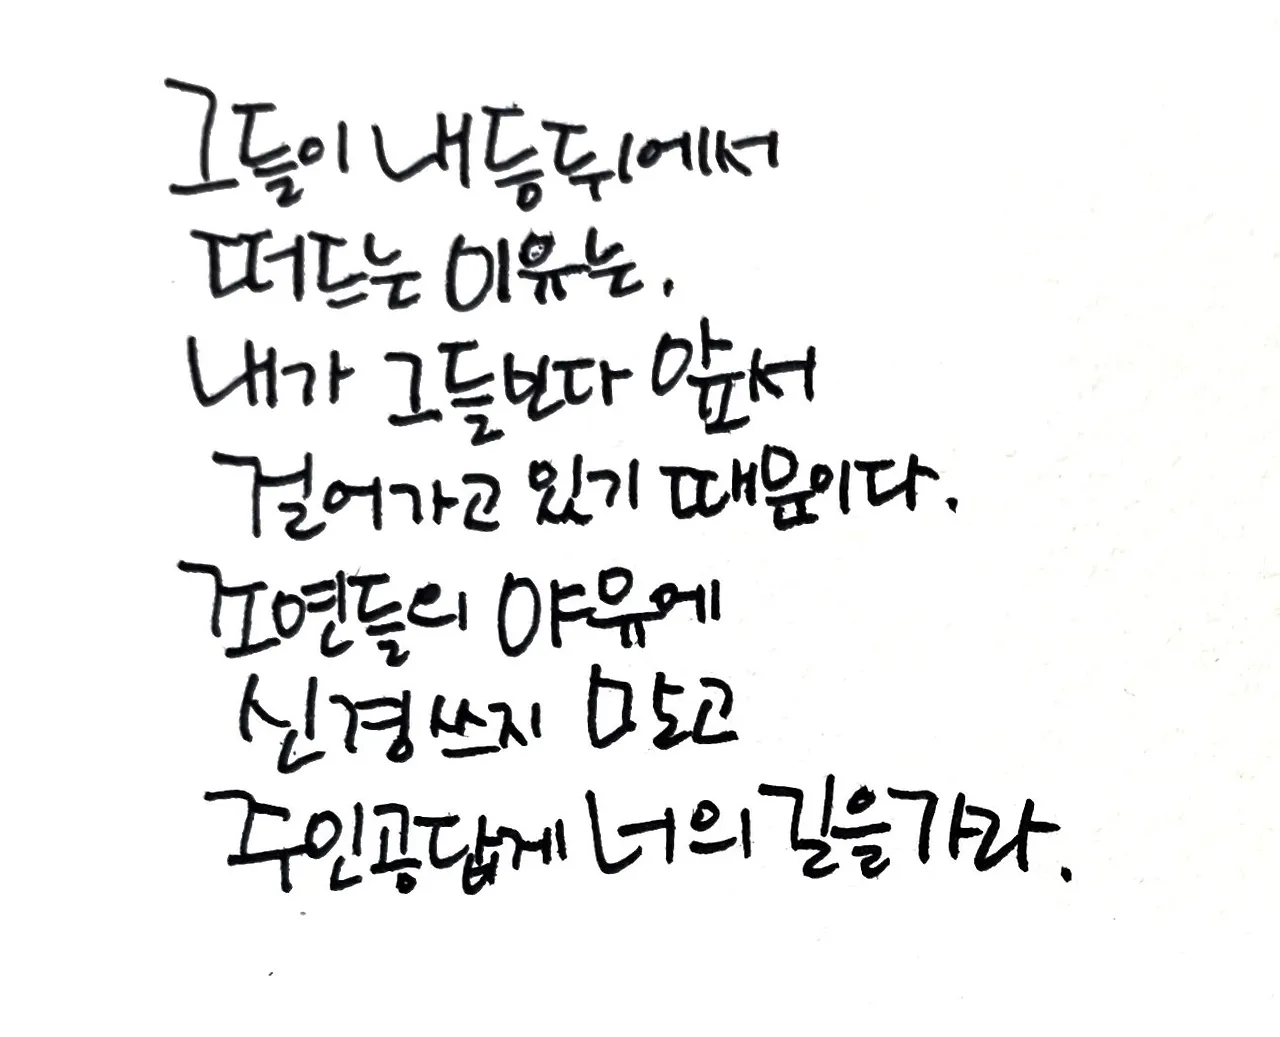 그들이 내 등 뒤에서
떠드는 이유는.
내가 그들보다 앞서
걸어가고 있기 때문이다.
조연들의 야유에
신경쓰지 말고
주인공답게 너의 길을 가라.